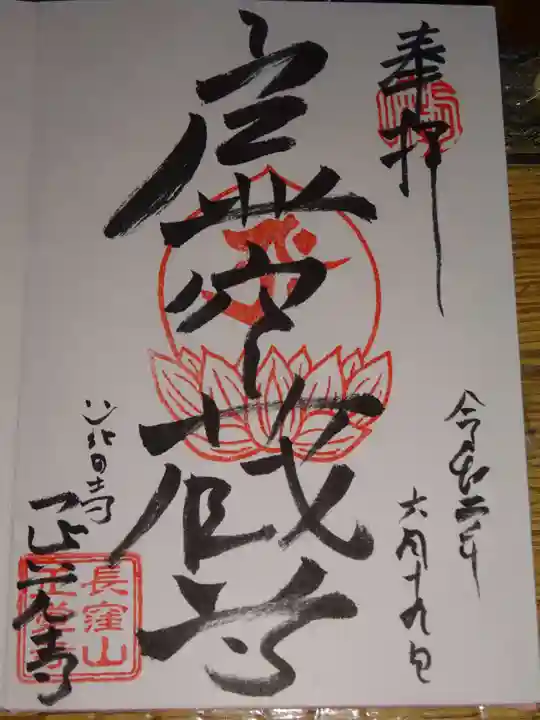 奉拝
令和二年
六月十九日
虚空蔵尊
正覚寺
長窪山
正覚寺